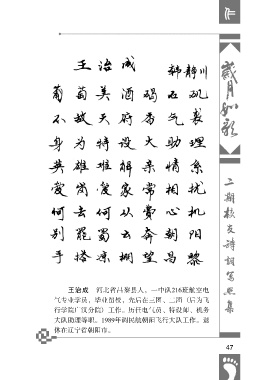 作
岁月如歌
王治成
韩静川
葡萄美酒碣石矶
身为特设大助理
英雄难解亲情系
爱岗爱家常相扰
何去何从费心机
别罢蜀云奔朝阳
手搭凉棚望昌黎
二期校友诗词写照集
王治成　河北省昌黎县人。一中队216班航空电
气专业学员，毕业留校，先后在三团、二团（后为飞
行学院广汉分院）工作。历任电气员、特设师、机务
大队助理等职。1989年调民航朝阳飞行大队工作。退
休在辽宁省朝阳市。
47